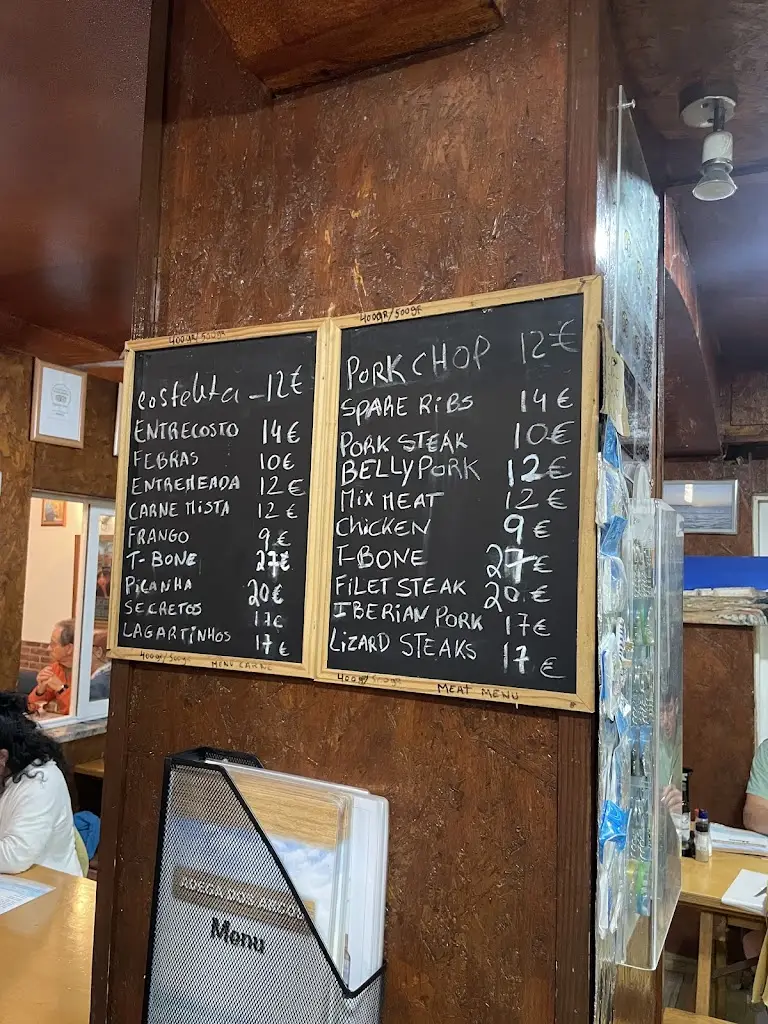 400GR/500GR
Costeleta - 12€
ENTRECOSTO 14€
FEBRAS 10€
ENTREMEADA 12€
CARNE MISTA 12€
FRANGO 9€
T-BONE 27€
PICANHA 20€
SECRETOS 17€
LAGARTINHOS 17€
400gr/500gr
MENU CARNE
400GR/500GR
PORK CHOP 12€
SPARE RIBS 14€
PORK STEAK 10€
BELLY PORK 12€
MIX MEAT 12€
CHICKEN 9€
T-BONE 27€
FILET STEAK 20€
IBERIAN PORK 17€
LIZARD STEAKS 17€
400gr/500gr
MEAT MENU
Menu